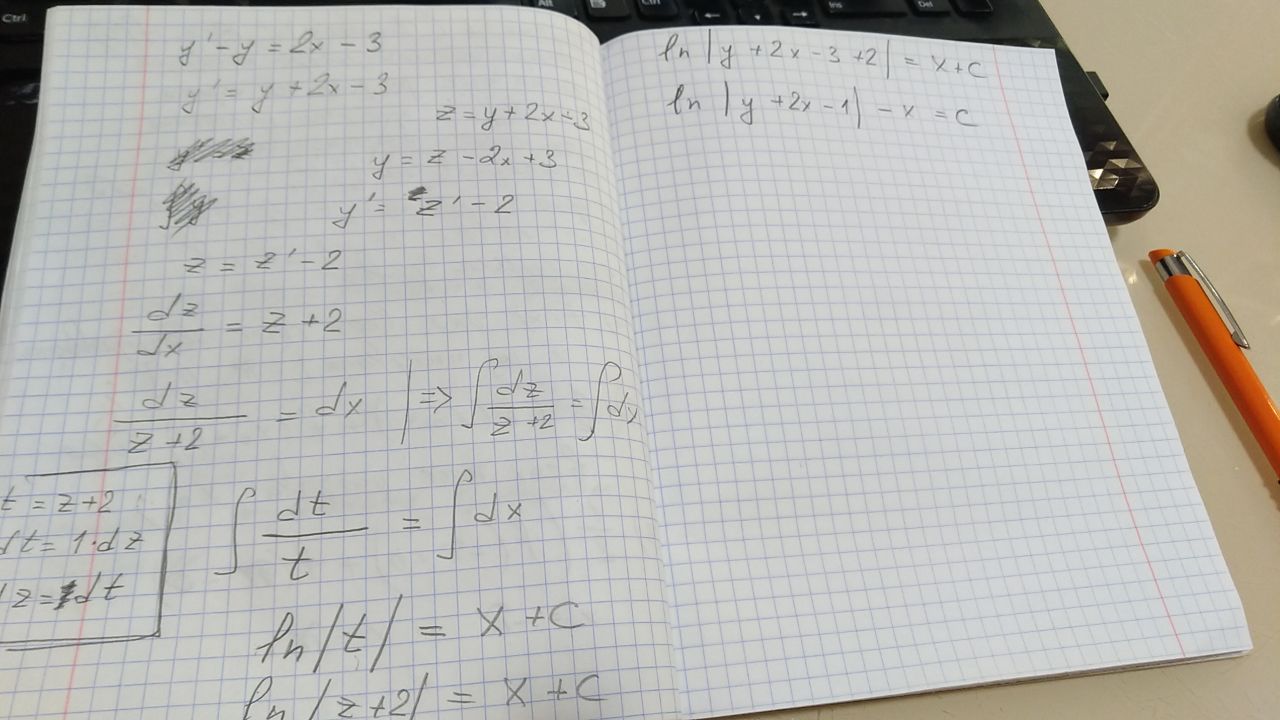 Ctrl
Alt
Ctrl
Ins
Del
y' - y = 2x - 3
y' = y + 2x - 3
z = y + 2x - 3
y = z - 2x + 3
y' = z' - 2
z = z' - 2
dz/dx = z + 2
dz/(z + 2) = dx | => ∫ dz/(z + 2) = ∫ dx
t = z + 2
dt = 1·dz
dz = dt
∫ dt/t = ∫ dx
ln |t| = x + C
ln |z + 2| = x + C
ln |y + 2x - 3 + 2| = x + C
ln |y + 2x - 1| - x = C